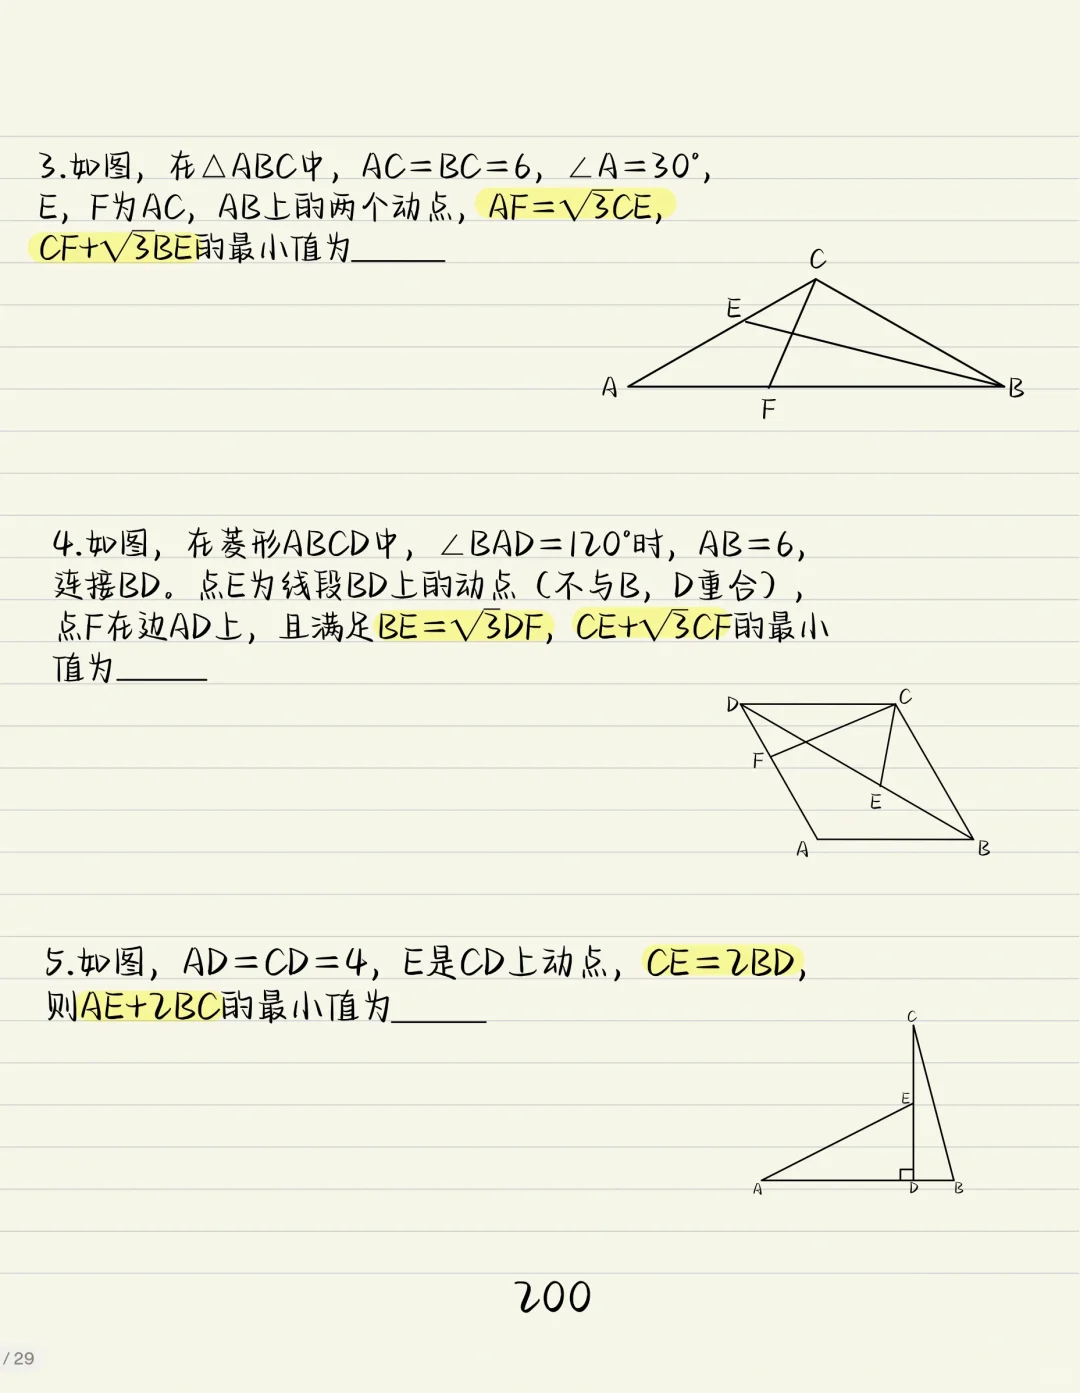 3.如图，在△ABC中，AC=BC=6，∠A=30°，
E，F为AC，AB上的两个动点，AF=√3CE，
CF+√3BE的最小值为______
C
E
A
B
F
4.如图，在菱形ABCD中，∠BAD=120°时，AB=6，
连接BD。点E为线段BD上的动点（不与B，D重合），
点F在边AD上，且满足BE=√3DF，CE+√3CF的最小
值为______
D
C
F
E
A
B
5.如图，AD=CD=4，E是CD上动点，CE=2BD，
则AE+2BC的最小值为______
C
E
A
D
B
200
/ 29